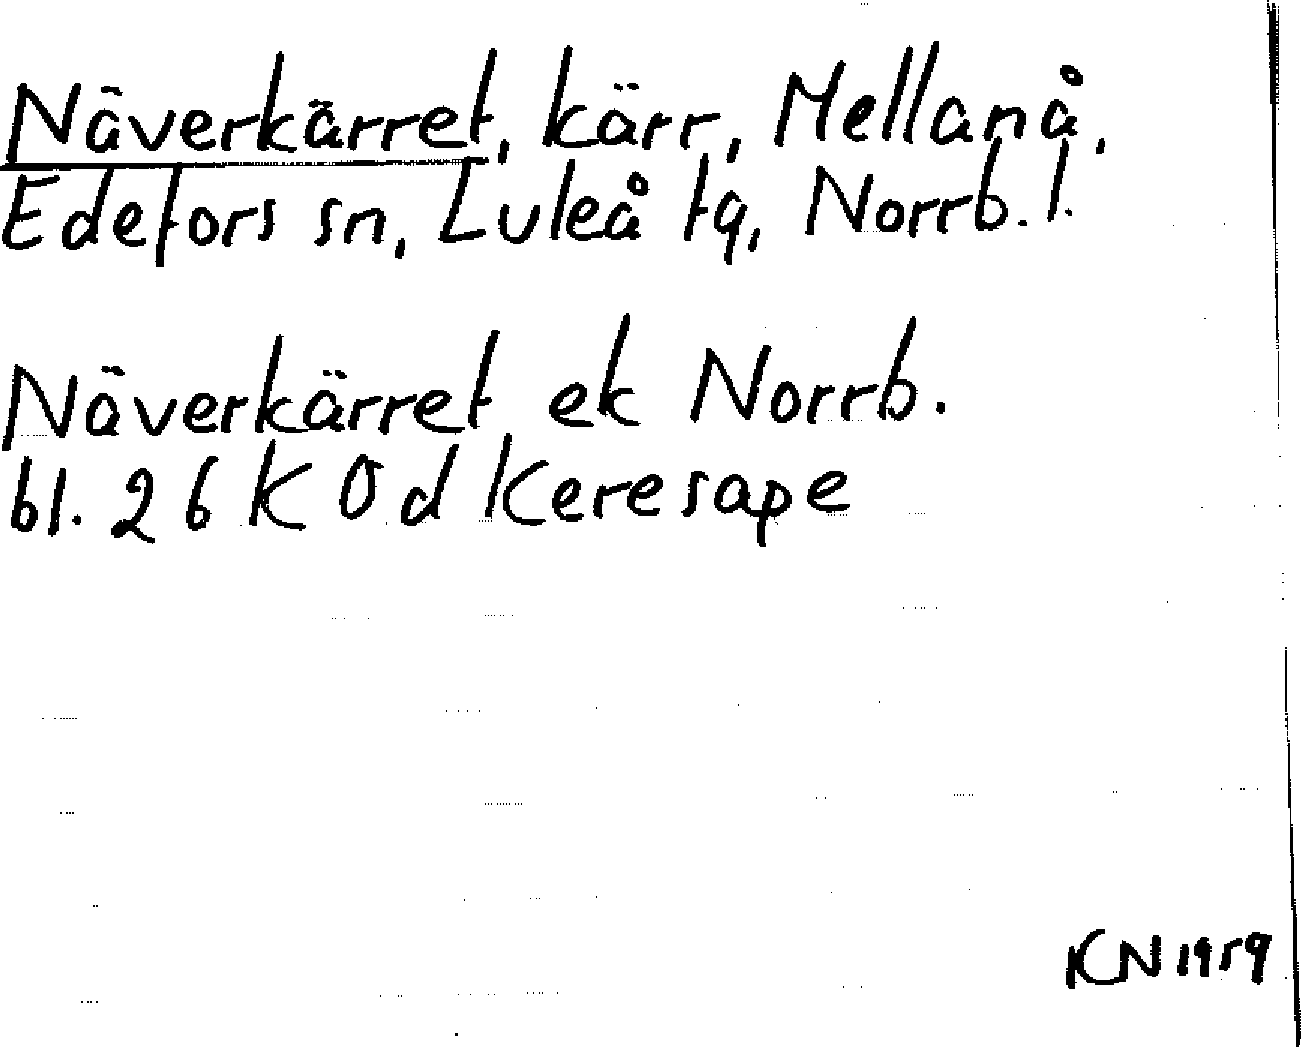 Näverkärret, kärr, Mellanå,
Edefors sn, Luleå tg, Norrb. l.
Näverkärret ek Norrb.
bl. 26 K O d Keresape
KN 1959